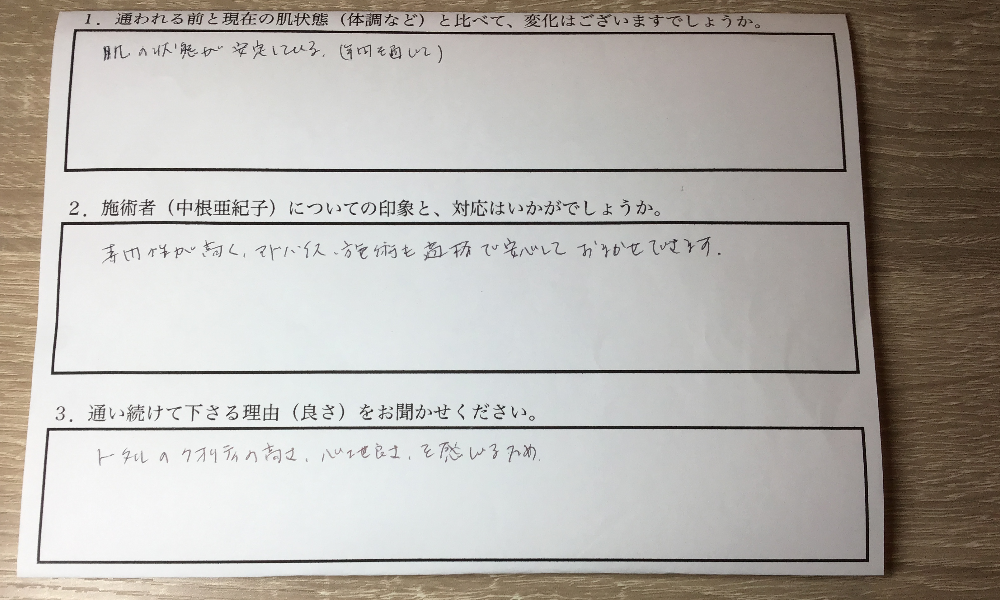 1．通われる前と現在の肌状態（体調など）と比べて、変化はございますでしょうか。
肌の状態が安定している。(年間を通して)
2．施術者（中根亜紀子）についての印象と、対応はいかがでしょうか。
専門性が高く、アドバイス、施術も適格で安心しておまかせできます。
3．通い続けて下さる理由（良さ）をお聞かせください。
トータルのクオリティの高さ、心地良さ、を感じるため